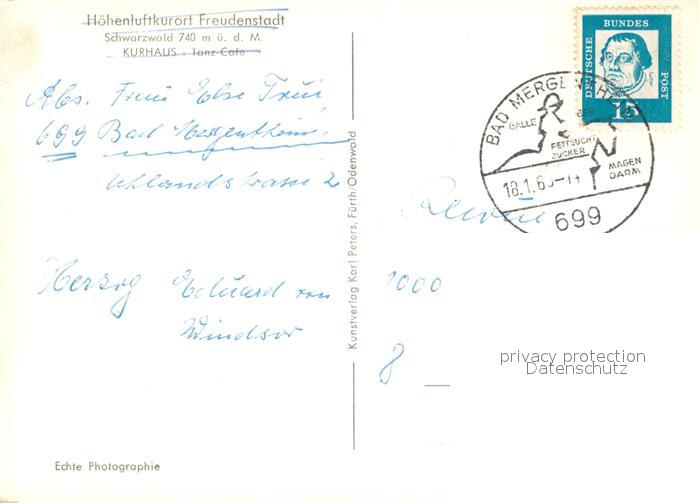 Höhenluftkurort Freudenstadt
Schwarzwald 740 m ü. d. M
KURHAUS - Tanz-Café
Abs. Frau Else
699 Bad Mergentheim
Uhlandstrasse 2
Herzog Eduard von
Windsor
Echte Photographie
Kunstverlag Karl Peters, Fürth/Odenwald
DEUTSCHE
BUNDES
POST
15
BAD MERGENTHEIM
GALLE
FETTSUCHT
ZUCKER
MAGEN
DARM
699
1000
8
privacy protection
Datenschutz